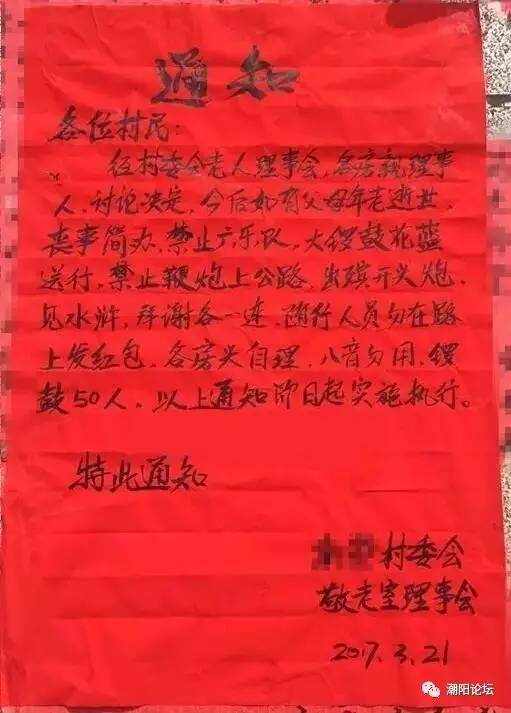 通知
各位村民：
伍村委会老人理事会，各房亲理事
人，讨论决定，今后如有父母年老逝世，
丧事简办，禁止广乐队，大锣鼓花篮
送行，禁止鞭炮上公路，出殡开头炮，
见水浒，拜谢各一连，随行人员勿在路
上发红包，各房头自理，八音勿用，锣
鼓50人，以上通知即日起实施执行。
特此通知
村委会
敬老室理事会
2017.3.21
潮阳论坛